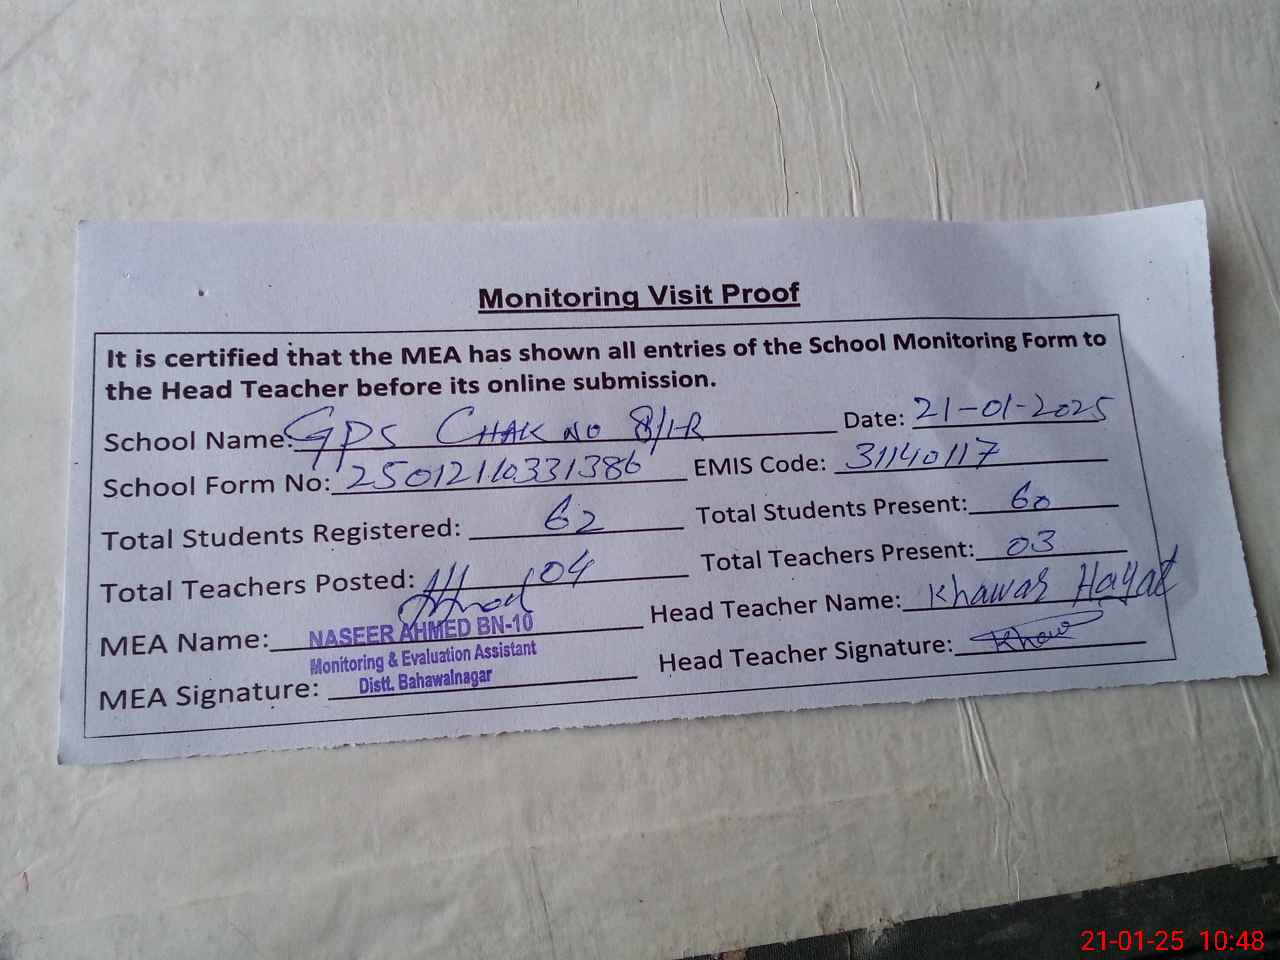 Monitoring Visit Proof
It is certified that the MEA has shown all entries of the School Monitoring Form to
the Head Teacher before its online submission.
School Name: GPS CHAK NO 8/1-R Date: 21-01-2025
School Form No: 25012110331386 EMIS Code: 31140117
Total Students Registered: 62 Total Students Present: 60
Total Teachers Posted: 04 Total Teachers Present: 03
MEA Name: NASEER AHMED BN-10 Head Teacher Name: Khawar Hayat
Monitoring & Evaluation Assistant
MEA Signature: Distt. Bahawalnagar Head Teacher Signature: Khawar
21-01-25 10:48